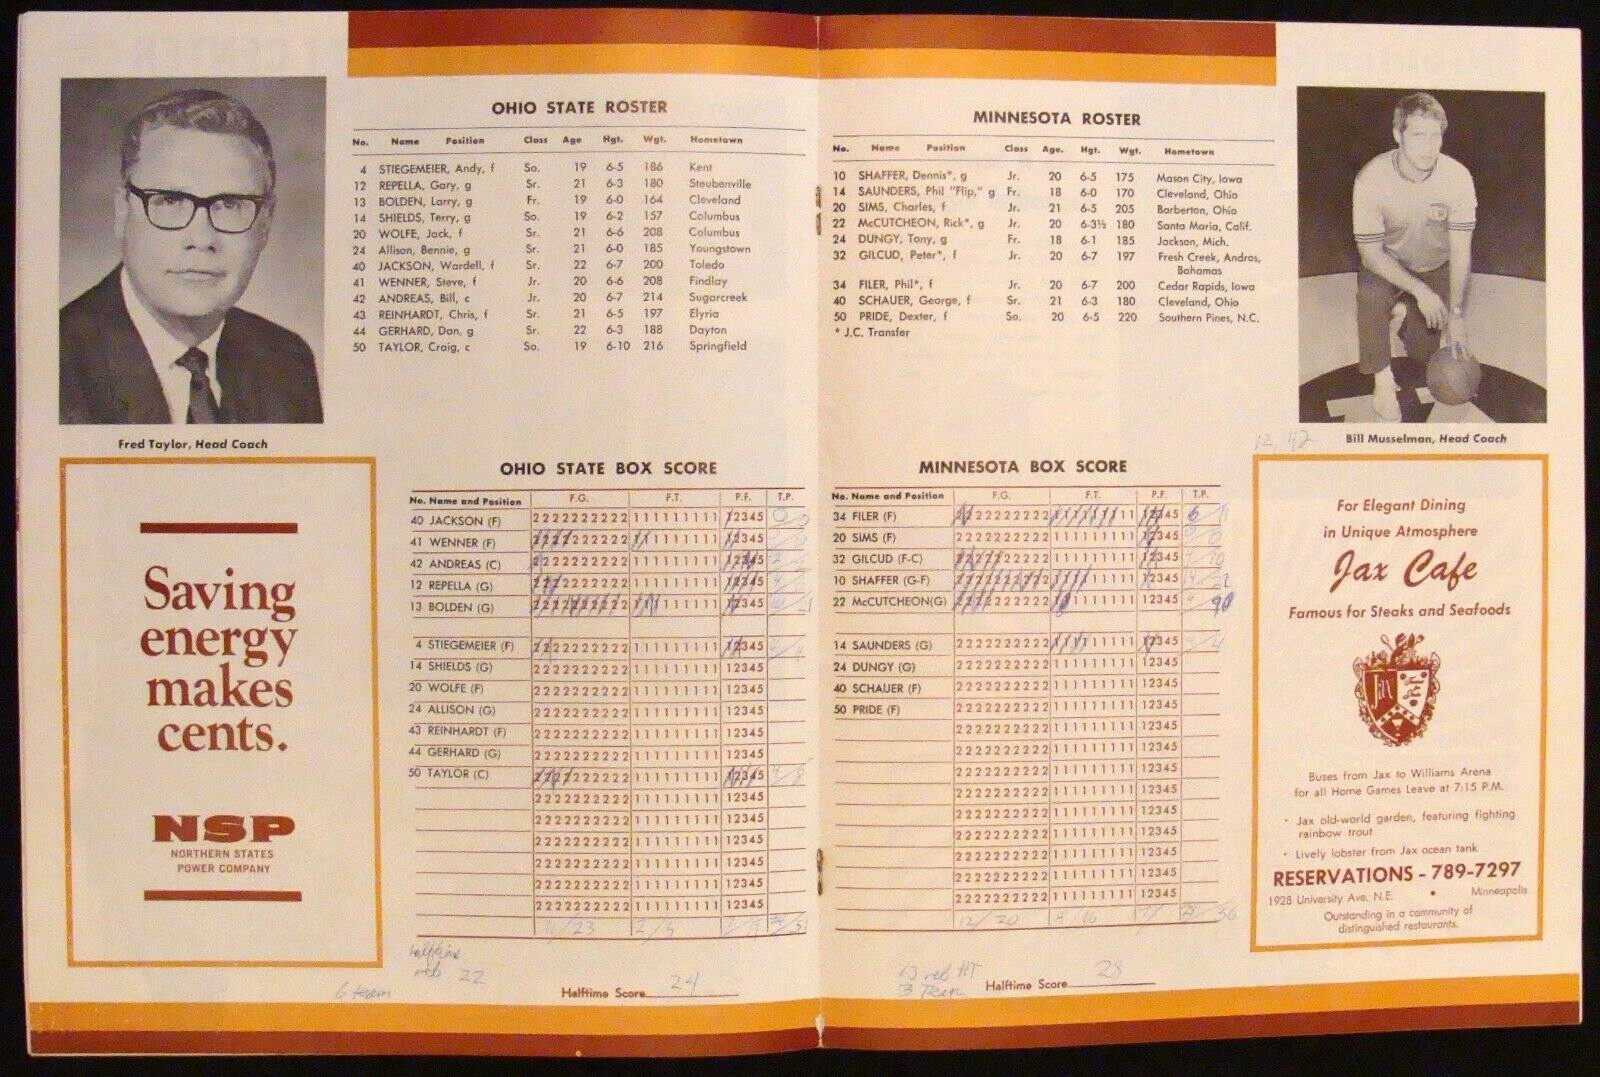 OHIO STATE ROSTER
No. Name Position Class Age Hgt. Wgt. Hometown
4 STIEGEMEIER, Andy, f So. 19 6-5 186 Kent
12 REPELLA, Gary, g Sr. 21 6-3 180 Steubenville
13 BOLDEN, Larry, g Fr. 19 6-0 164 Cleveland
14 SHIELDS, Terry, g So. 19 6-2 157 Columbus
20 WOLFE, Jack, f Sr. 21 6-6 208 Columbus
24 Allison, Bennie, g Sr. 21 6-0 185 Youngstown
40 JACKSON, Wardell, f Sr. 22 6-7 200 Toledo
41 WENNER, Steve, f Jr. 20 6-6 208 Findlay
42 ANDREAS, Bill, c Jr. 20 6-7 214 Sugarcreek
43 REINHARDT, Chris, f Sr. 21 6-5 197 Elyria
44 GERHARD, Dan, g Sr. 22 6-3 188 Dayton
50 TAYLOR, Craig, c So. 19 6-10 216 Springfield
Fred Taylor, Head Coach
Saving
energy
makes
cents.
NSP
NORTHERN STATES
POWER COMPANY
OHIO STATE BOX SCORE
No. Name and Position F.G. F.T. P.F. T.P.
40 JACKSON (F) 2222222222 111111111 12345
41 WENNER (F) 2222222222 111111111 12345
42 ANDREAS (C) 2222222222 111111111 12345
12 REPELLA (G) 2222222222 111111111 12345
13 BOLDEN (G) 2222222222 111111111 12345
4 STIEGEMEIER (F) 2222222222 111111111 12345
14 SHIELDS (G) 2222222222 111111111 12345
20 WOLFE (F) 2222222222 111111111 12345
24 ALLISON (G) 2222222222 111111111 12345
43 REINHARDT (F) 2222222222 111111111 12345
44 GERHARD (G) 2222222222 111111111 12345
50 TAYLOR (C) 2222222222 111111111 12345
2222222222 111111111 12345
2222222222 111111111 12345
2222222222 111111111 12345
2222222222 111111111 12345
2222222222 111111111 12345
2222222222 111111111 12345
11/23 2/5
halftime
reb 22
6 team
Halftime Score 24
MINNESOTA ROSTER
No. Name Position Class Age. Hgt. Wgt. Hometown
10 SHAFFER, Dennis*, g Jr. 20 6-5 175 Mason City, Iowa
14 SAUNDERS, Phil "Flip," g Fr. 18 6-0 170 Cleveland, Ohio
20 SIMS, Charles, f Jr. 21 6-5 205 Barberton, Ohio
22 McCUTCHEON, Rick*, g Jr. 20 6-3½ 180 Santa Maria, Calif.
24 DUNGY, Tony, g Fr. 18 6-1 185 Jackson, Mich.
32 GILCUD, Peter*, f Jr. 20 6-7 197 Fresh Creek, Andros,
Bahamas
34 FILER, Phil*, f Jr. 20 6-7 200 Cedar Rapids, Iowa
40 SCHAUER, George, f Sr. 21 6-3 180 Cleveland, Ohio
50 PRIDE, Dexter, f So. 20 6-5 220 Southern Pines, N.C.
* J.C. Transfer
12, 42
Bill Musselman, Head Coach
MINNESOTA BOX SCORE
No. Name and Position F.G. F.T. P.F. T.P.
34 FILER (F) 2222222222 111111111 12345 6/11
20 SIMS (F) 2222222222 111111111 12345
32 GILCUD (F-C) 2222222222 111111111 12345
10 SHAFFER (G-F) 2222222222 111111111 12345 14/22
22 McCUTCHEON(G) 2222222222 111111111 12345
14 SAUNDERS (G) 2222222222 111111111 12345
24 DUNGY (G) 2222222222 111111111 12345
40 SCHAUER (F) 2222222222 111111111 12345
50 PRIDE (F) 2222222222 111111111 12345
2222222222 111111111 12345
2222222222 111111111 12345
2222222222 111111111 12345
2222222222 111111111 12345
2222222222 111111111 12345
2222222222 111111111 12345
2222222222 111111111 12345
2222222222 111111111 12345
2222222222 111111111 12345
12/20 4/16
13 reb HT
3 Team
Halftime Score 28
For Elegant Dining
in Unique Atmosphere
Jax Cafe
Famous for Steaks and Seafoods
Jax
Buses from Jax to Williams Arena
for all Home Games Leave at 7:15 P.M.
• Jax old-world garden, featuring fighting
rainbow trout
• Lively lobster from Jax ocean tank
RESERVATIONS - 789-7297
1928 University Ave. N.E. • Minneapolis
Outstanding in a community of
distinguished restaurants.